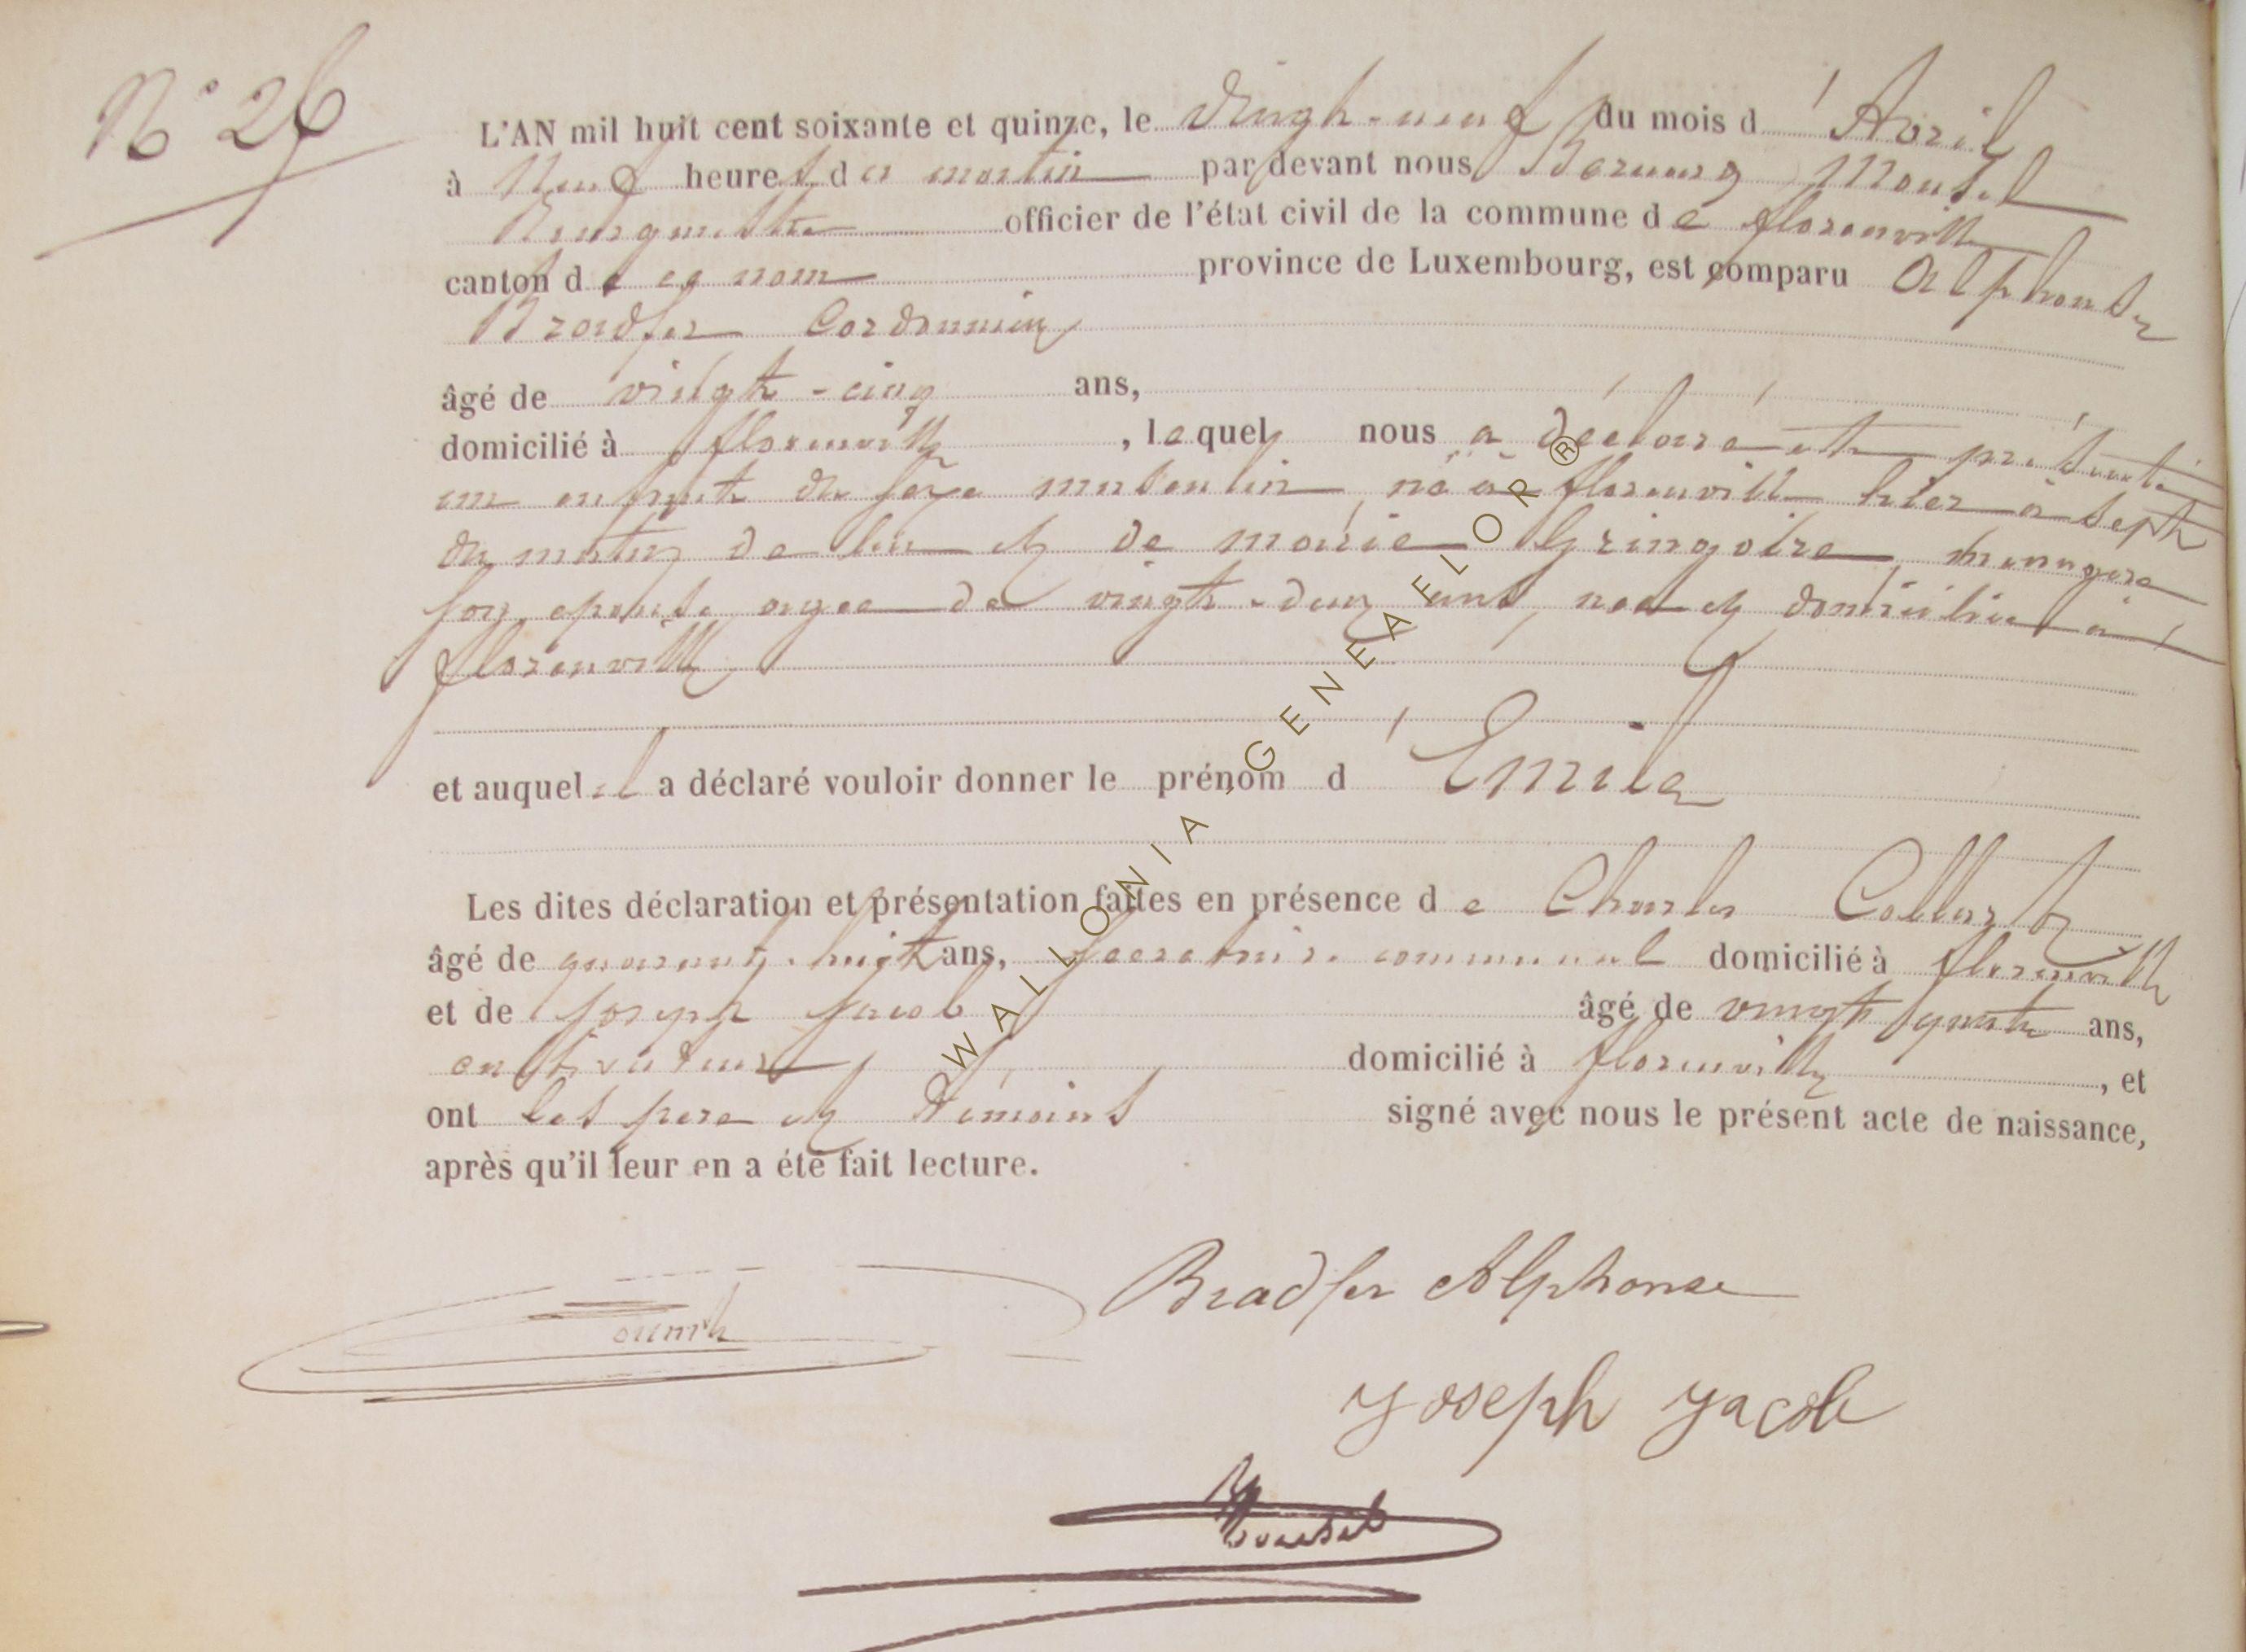 N° 26
L'AN mil huit cent soixante et quinze, le vingt-neuf du mois d'Avril
à Neuf heures du matin par devant nous Mousel
Bourgmestre officier de l'état civil de la commune de florenville
canton de ce nom province de Luxembourg, est comparu Alphonse
Bradfer Cordonnier
âgé de vingt-cinq ans,
domicilié à florenville, lequel nous a déclaré et présenté
un enfant du sexe masculin, né à florenville hier à sept
du matin de lui et de marie Gringoire, menagère
son épouse agée de vingt-deux ans, née et domiciliée à
florenville
et auquel il a déclaré vouloir donner le prénom d'Emile
Les dites déclaration et présentation faites en présence de Charles Collart
âgé de quarante-huit ans, secretaire communal domicilié à florenville
et de Joseph Jacob âgé de vingt quatre ans,
cultivateur domicilié à florenville, et
ont les père et témoins signé avec nous le présent acte de naissance,
après qu'il leur en a été fait lecture.
Bradfer Alphonse
Joseph Jacob
Mousel
WALLONIA - GENEAFLOR ®